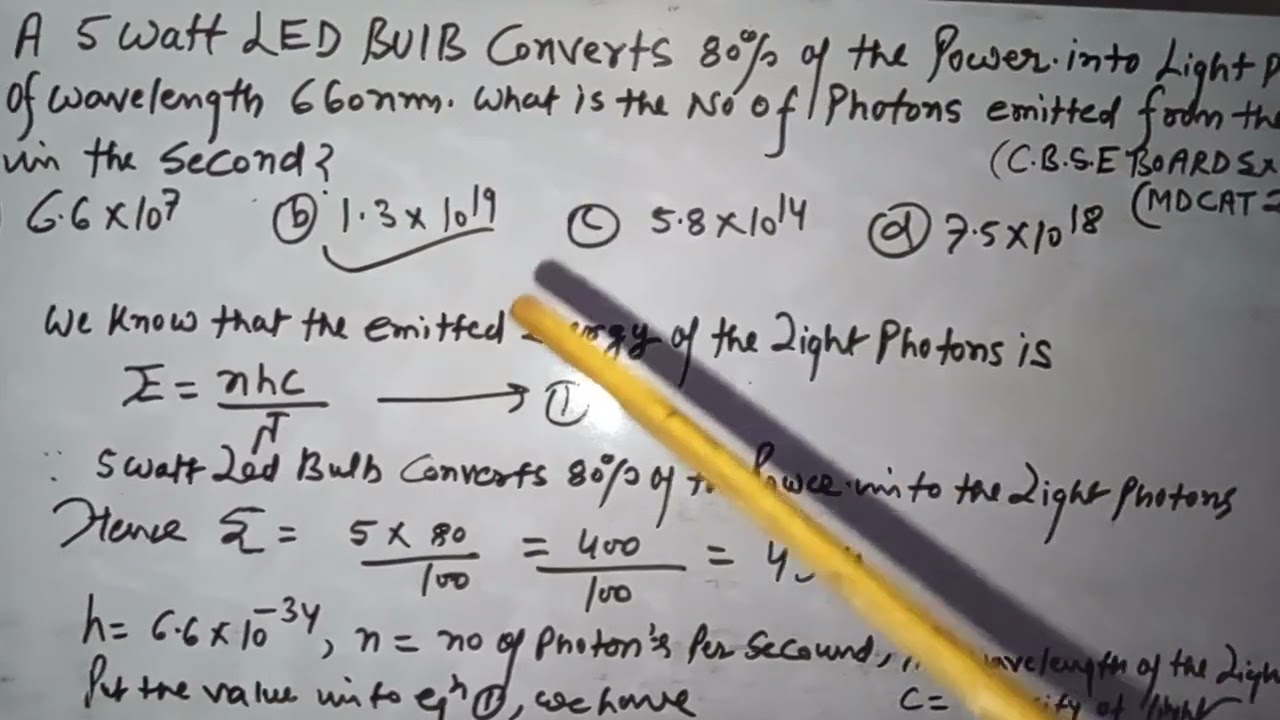 A 5 Watt LED BUlB Converts 80% of the Power into Light P
of wavelength 660nm. What is the No of Photons emitted from the
in the Second?
(C.B.S.E BOARD Ex
(MDCAT 2
6.6 × 10^7 (b) 1.3 × 10^19 (c) 5.8 × 10^14 (d) 7.5 × 10^18
We Know that the emitted Energy of the Light Photons is
E = nhc/λ → (1)
∵ 5 watt Led Bulb Converts 80% of the Power into the Light Photons
Hence E = 5 × 80/100 = 400/100 = 4
h = 6.6 × 10^-34, n = no of Photon's Per Secound, wavelength of the Ligh
Put the value into eqn (1), we have
C = of light